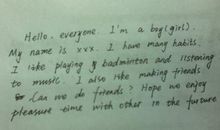 Hello. everyone. I'm a boy(girl).
My name is xxx. I have many habits.
I like playing badminton and listening
to music. I also like making friends.
Can we do friends? Hope we enjoy
pleasure time with other in the furture